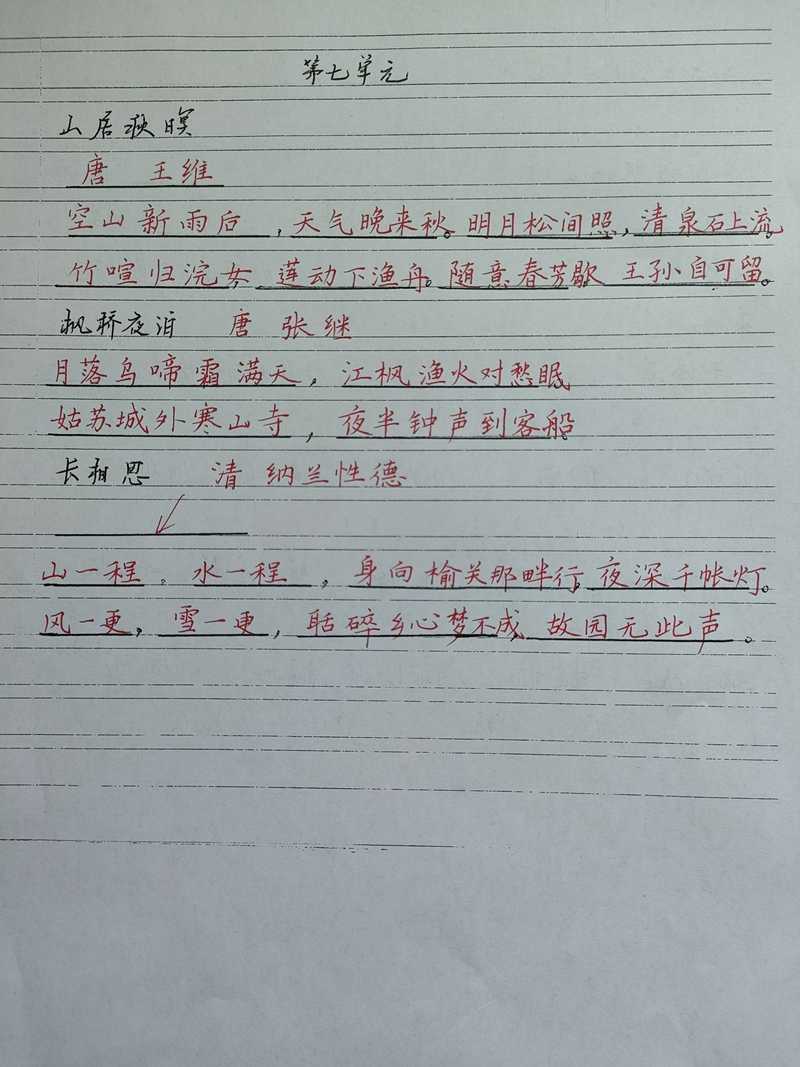 第七单元
山居秋暝
唐 王维
空山新雨后，天气晚来秋。明月松间照，清泉石上流。
竹喧归浣女 莲动下渔舟。随意春芳歇 王孙自可留。
枫桥夜泊 唐 张继
月落乌啼霜满天，江枫渔火对愁眠
姑苏城外寒山寺，夜半钟声到客船
长相思 清 纳兰性德
山一程。水一程，身向榆关那畔行，夜深千帐灯。
风一更，雪一更，聒碎乡心梦不成，故园无此声。